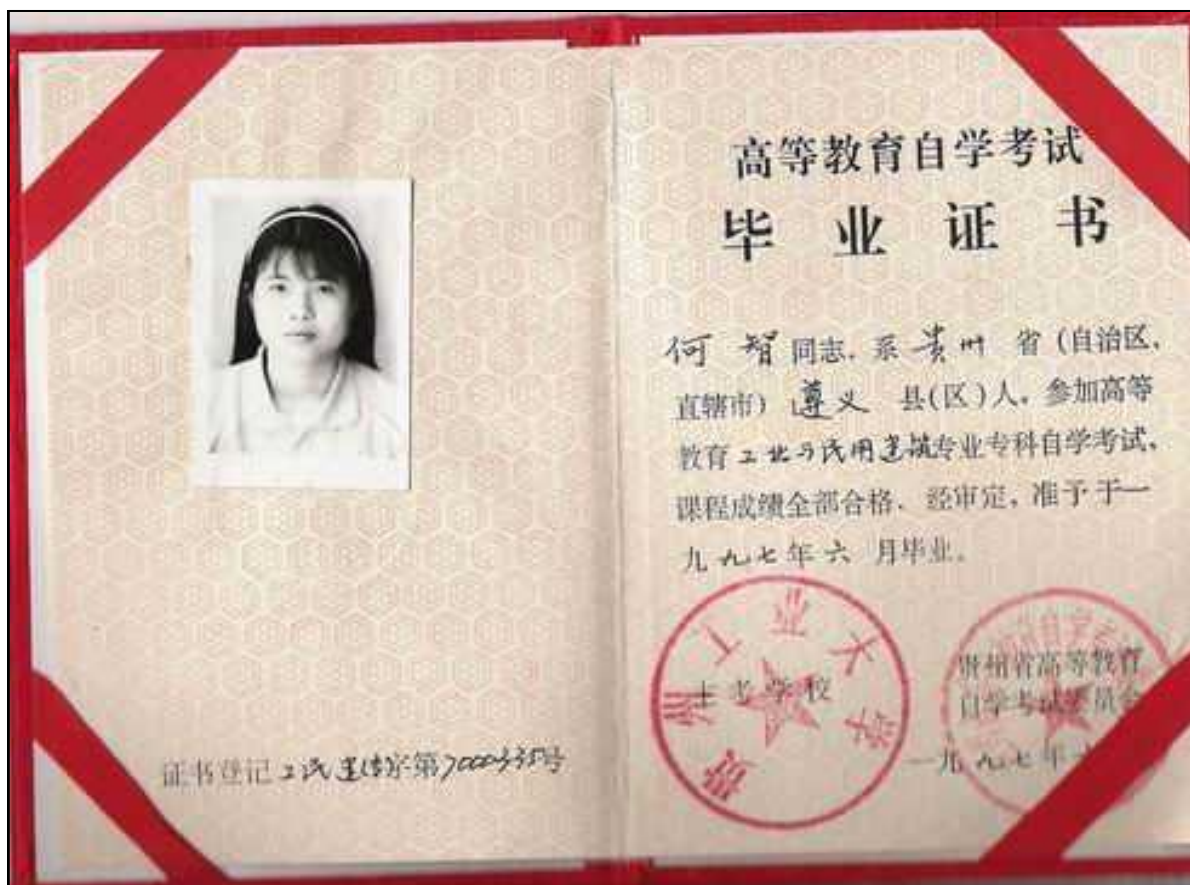 高等教育自学考试
毕业证书
何智同志，系贵州省（自治区、
直辖市）遵义县(区)人，参加高等
教育工业与民用建筑专业专科自学考试，
课程成绩全部合格、经审定，准予于一
九九七年六月毕业。
贵州工业大学
主考学校
贵州省高等教育
自学考试委员会
一九九七年
证书登记工民建(专)字第7000335号